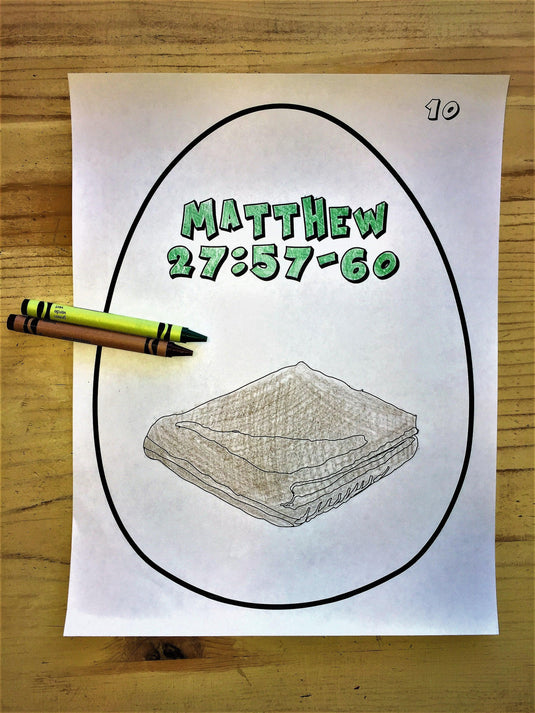 10
MATTHEW
27:57-60